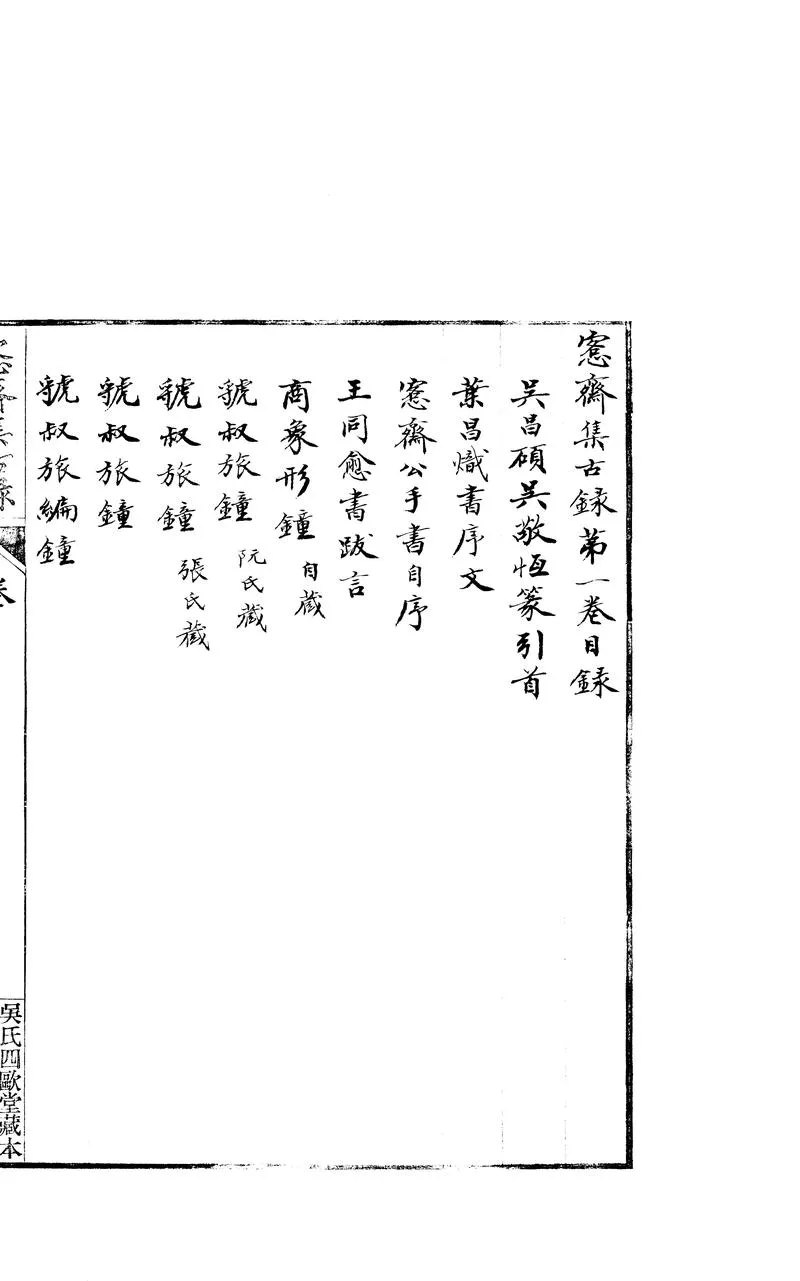 愙齋集古録第一卷目録
吳昌碩吳敬恆篆引首
葉昌熾書序文
愙齋公手書自序
王同愈書跋言
商象形鐘 自藏
虢叔旅鐘 阮氏藏
虢叔旅鐘 張氏藏
虢叔旅鐘
虢叔旅編鐘
愙齋集古録
卷
吳氏四歐堂藏本